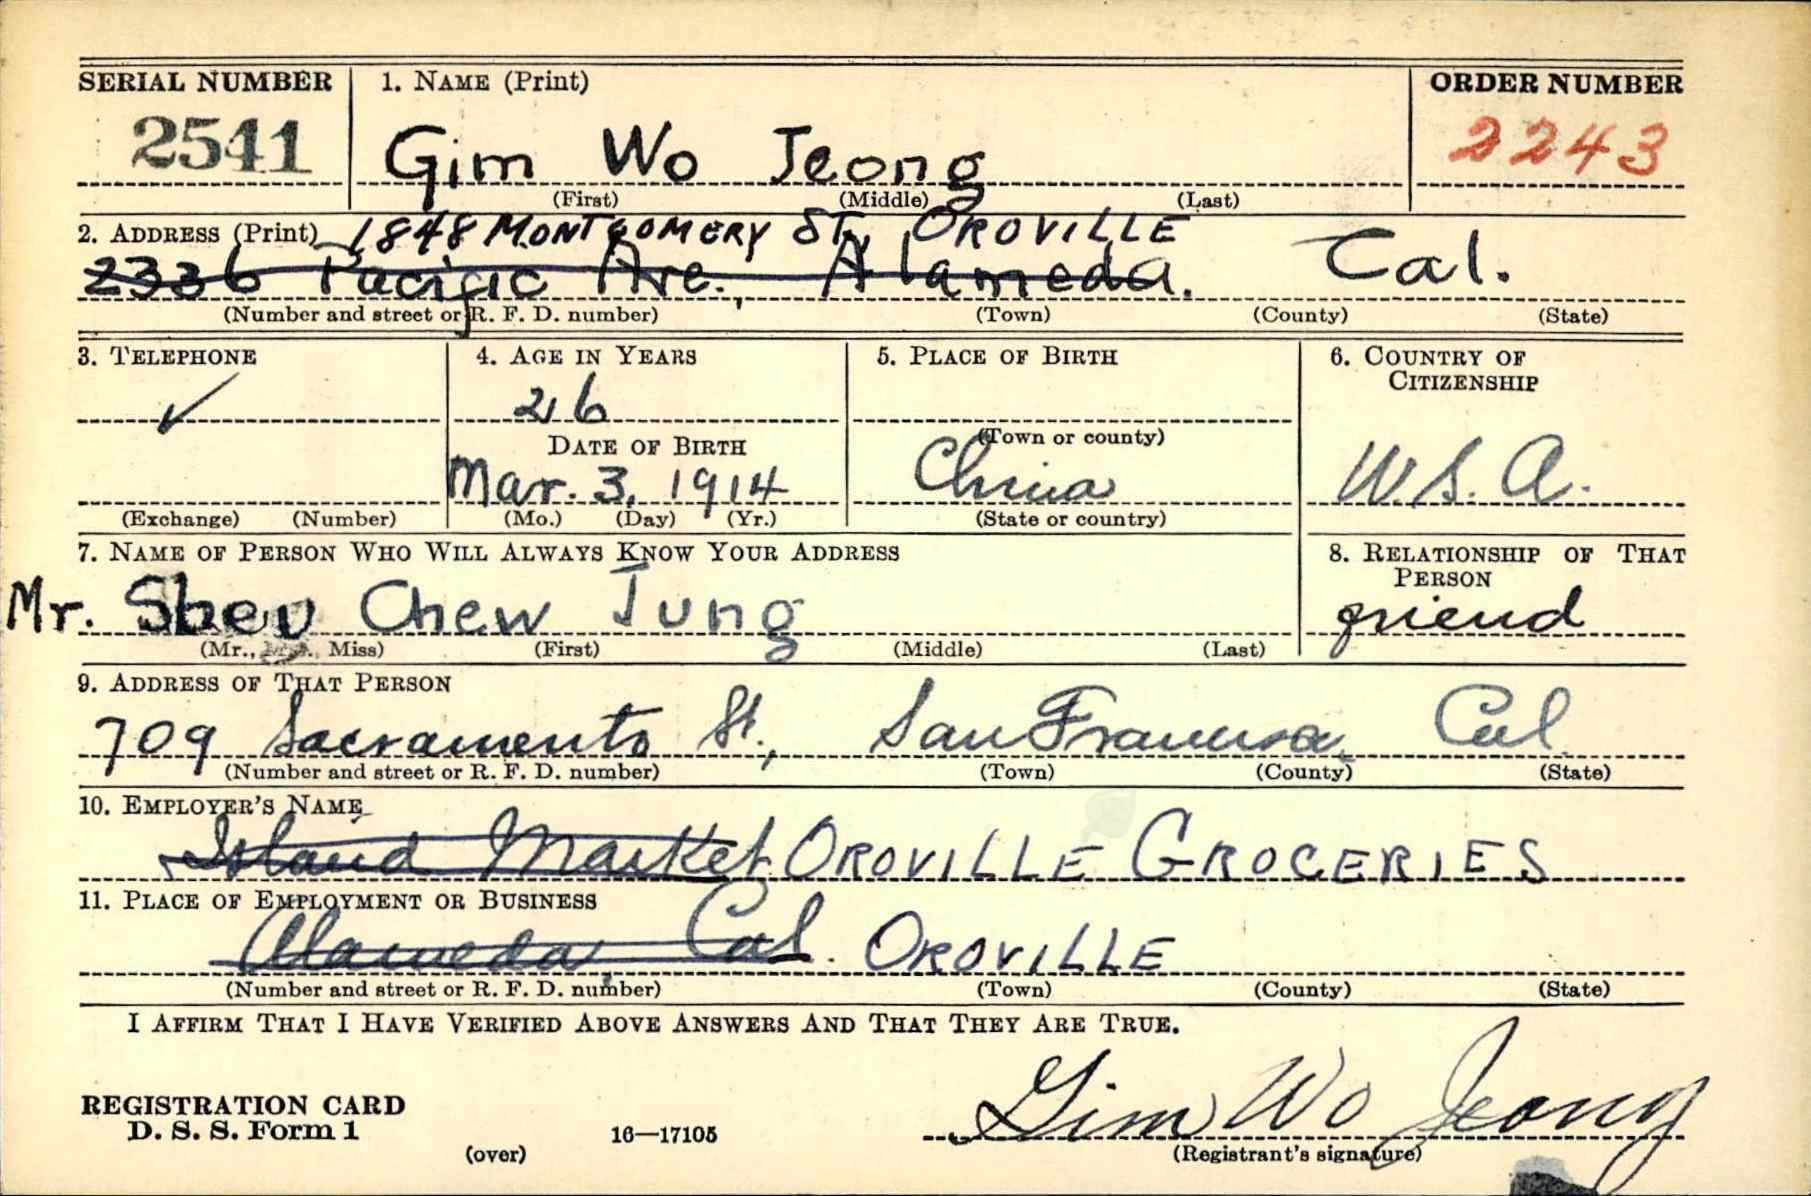 SERIAL NUMBER 1. NAME (Print) ORDER NUMBER
2541 Gim Wo Jeong 2243
(First) (Middle) (Last)
2. ADDRESS (Print) 1848 MONTGOMERY ST. OROVILLE
2336 Pacific Ave. Alameda. Cal.
(Number and street or R. F. D. number) (Town) (County) (State)
3. TELEPHONE 4. AGE IN YEARS 5. PLACE OF BIRTH 6. COUNTRY OF CITIZENSHIP
✓ 26
DATE OF BIRTH (Town or county)
Mar. 3, 1914 China U.S.A.
(Exchange) (Number) (Mo.) (Day) (Yr.) (State or country)
7. NAME OF PERSON WHO WILL ALWAYS KNOW YOUR ADDRESS 8. RELATIONSHIP OF THAT PERSON
Mr. Chew Jung friend
(Mr., Mrs., Miss) (First) (Middle) (Last)
9. ADDRESS OF THAT PERSON
709 Sacramento St., San Francisco Cal
(Number and street or R. F. D. number) (Town) (County) (State)
10. EMPLOYER'S NAME
Island Market OROVILLE GROCERIES
11. PLACE OF EMPLOYMENT OR BUSINESS
Alameda, Cal. OROVILLE
(Number and street or R. F. D. number) (Town) (County) (State)
I AFFIRM THAT I HAVE VERIFIED ABOVE ANSWERS AND THAT THEY ARE TRUE.
REGISTRATION CARD
D. S. S. Form 1 16—17105 Gim Wo Jeong
(over) (Registrant's signature)